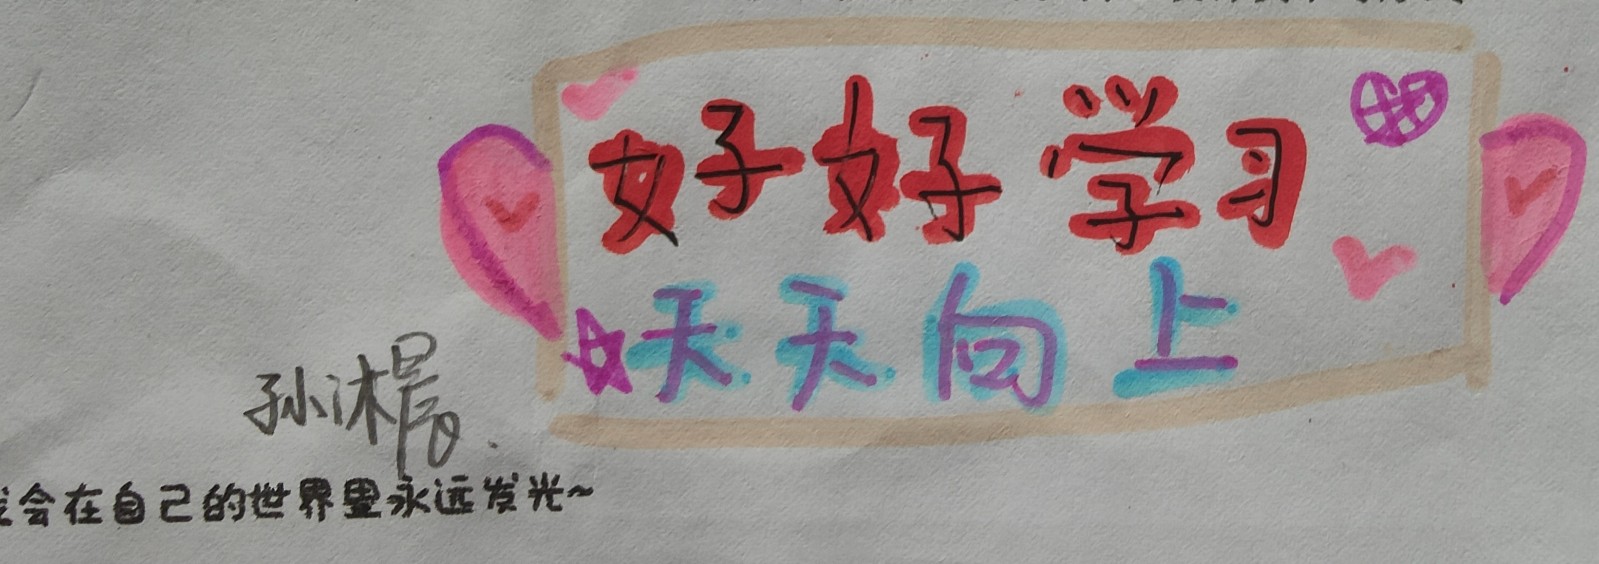 好好学习
天天向上
孙沐晨.
会在自己的世界里永远发光~